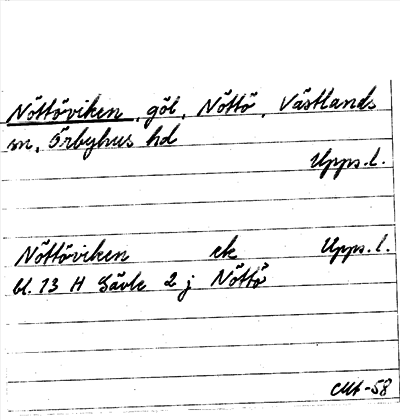 Nöttöviken, göl, Nöttö, Västlands
sn, Örbyhus hd
Upps.l.
Nöttöviken ek Upps.l.
bl. 13 H Gävle 2 j Nöttö
-58